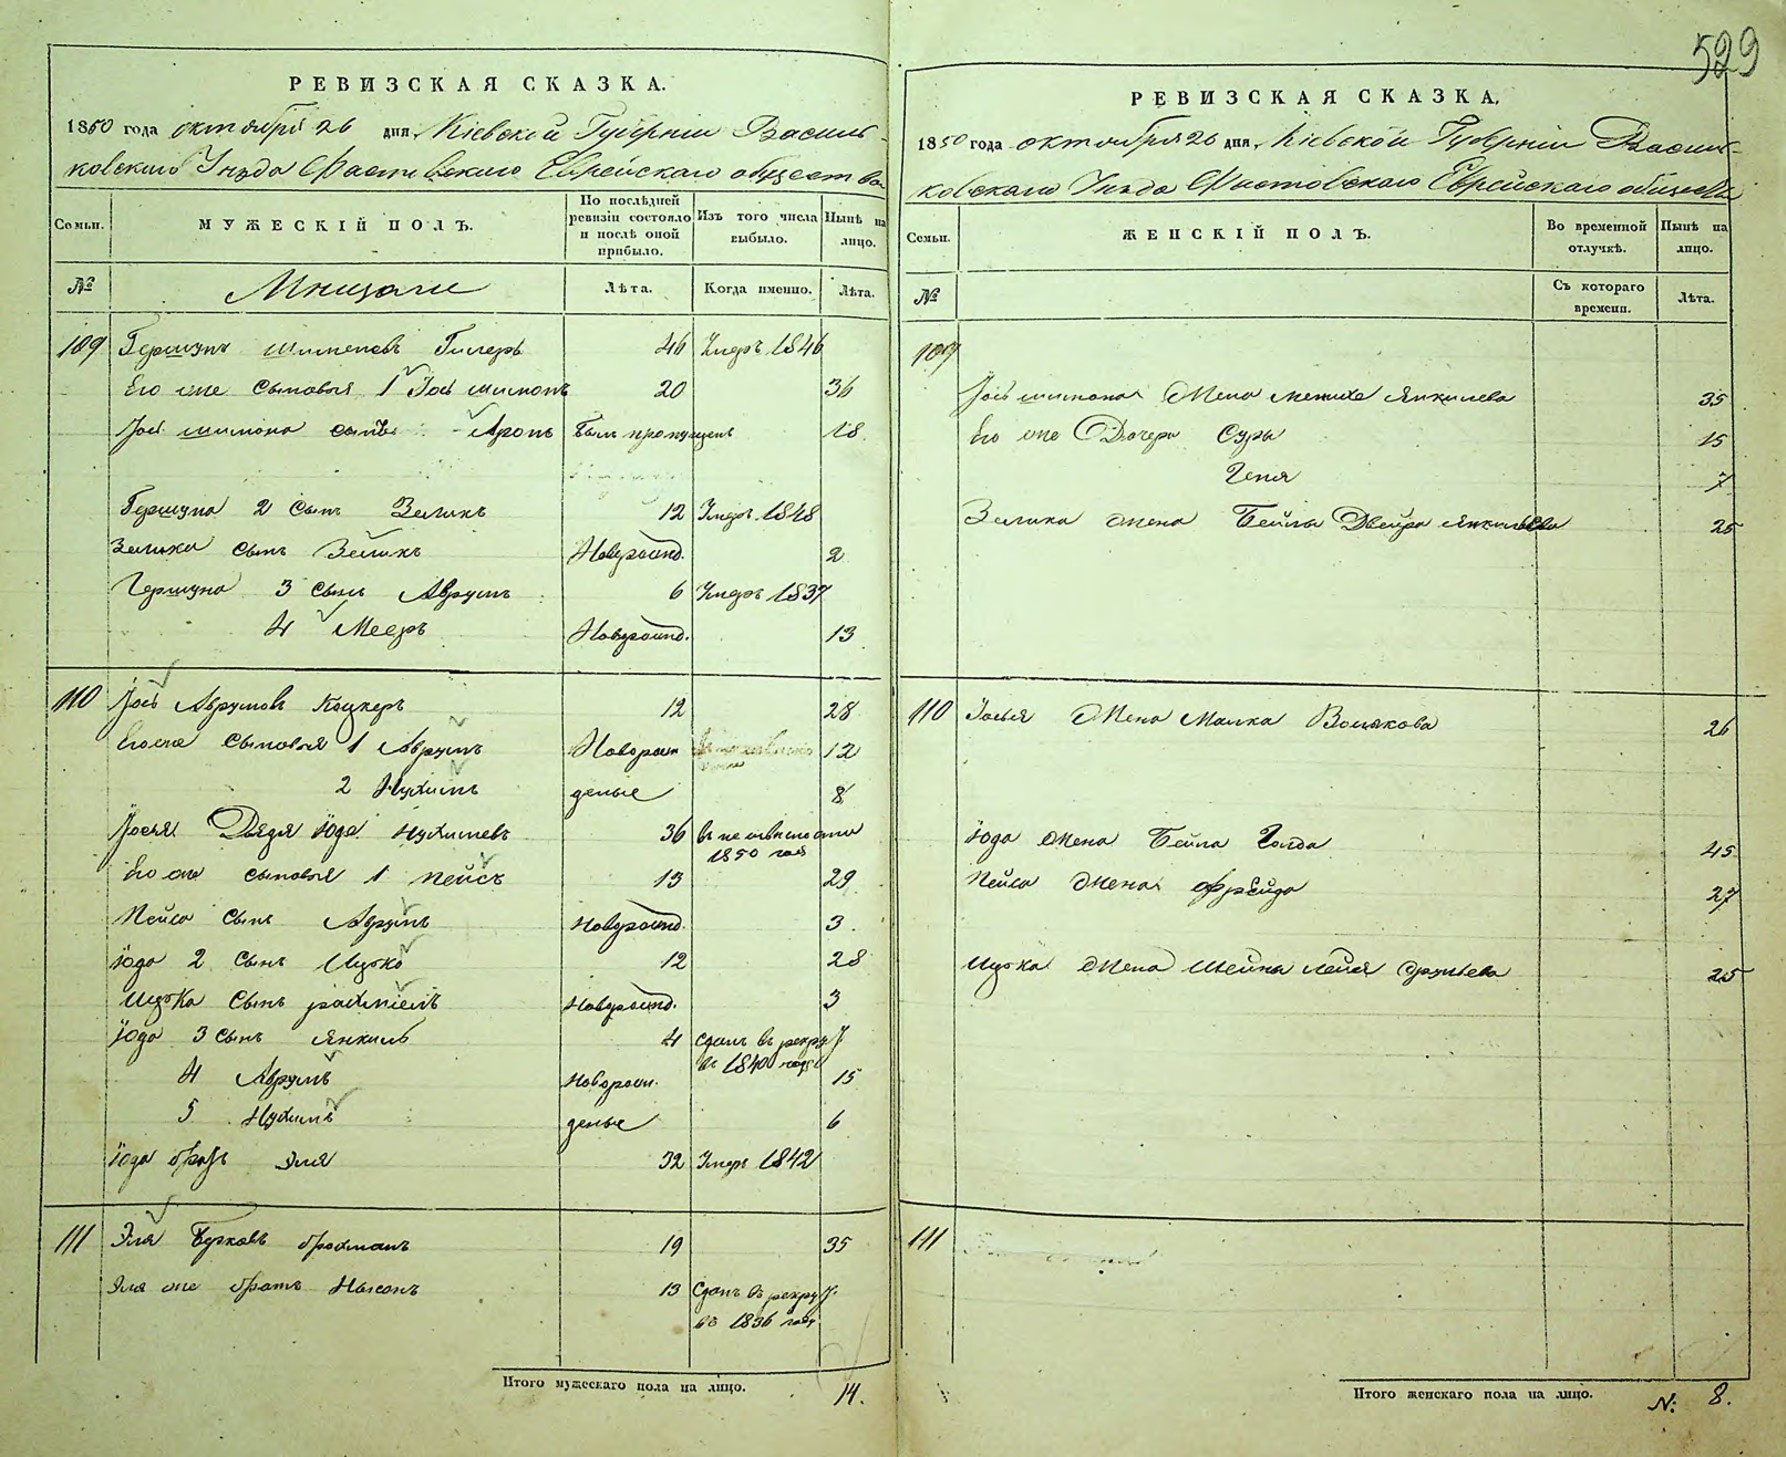 529
РЕВИЗСКАЯ СКАЗКА.
1850 года октября 26 дня, Кіевской Губерніи Василь-
ковскаго Уѣзда Фастовскаго Еврейскаго общества
Семьи.
МУЖЕСКІЙ ПОЛЪ.
По послѣдней ревизіи состояло и послѣ оной прибыло.
Изъ того числа выбыло.
Нынѣ на лицо.
№
Мещане
Лѣта.
Когда именно.
Лѣта.
109 Гершунъ Шимоновъ 46 Умеръ 1846
Его же сыновья 1 Іось Шимонъ 20 36
Іось Шимона сынъ Аронъ Былъ пропущенъ 18
Гершуна 2 сынъ Зеликъ 12 Умеръ 1848
Зелика сынъ Зеликъ Новорожд. 2
Гершуна 3 сынъ Аврумъ 6 Умеръ 1837
4 Мееръ Новорожд. 13
110 Іось Аврумовъ Коцкеръ 12 28
Его же сыновья 1 Аврумъ Новорож 12
2 Нухимъ деные 8
Іосья Дядя Юда Нухимовъ 36 въ неизвестно 1850 года
Его же сыновья 1 Пейсъ 13 29
Пейса сынъ Аврумъ Новорожд. 3.
Юда 2 сынъ Ицько 12 28
Ицька сынъ Рахміель Новорожд. 3
Юда 3 сынъ Янкиль 4 сданъ въ рекру.
въ 1840 году
4 Аврумъ Новорож. 15
5 Нухимъ деные 6
Юда братъ Эля 32 Умеръ 1842
111 Эля Берковъ 19 35
Эля же братъ Нысонъ 13 Сданъ въ рекру.
въ 1836 году
Итого мужескаго пола на лицо. 14.
РЕВИЗСКАЯ СКАЗКА.
1850 года октября 26 дня, Кіевской Губерніи Василь-
ковскаго Уѣзда Фастовскаго Еврейскаго общества
Семьи.
ЖЕНСКІЙ ПОЛЪ.
Во временной отлучкѣ.
Нынѣ на лицо.
№
Съ котораго времени.
Лѣта.
109
Іось Шимона Жена Янкилева 35
Его же Дочери Суры 15
Геня 7
Зелика жена Бейла Двейра Янкилева 25
110 Іосья Жена Малка Волькова 26
Юда жена Бейла Голда 45
Пейса жена Фрейда 27
Ицька жена Шейна Лейя 25
111
Итого женскаго пола на лицо. 8.